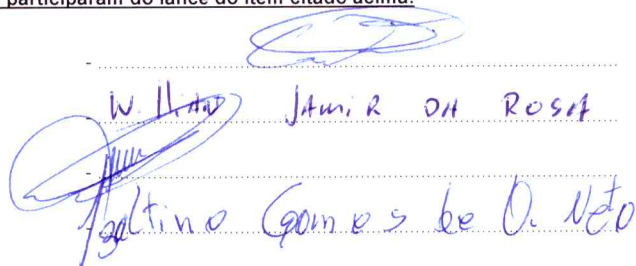 participaram do lance do item citado acima.
-
- Willian Jamir da Rosa
-
- Gomes de O. Neto